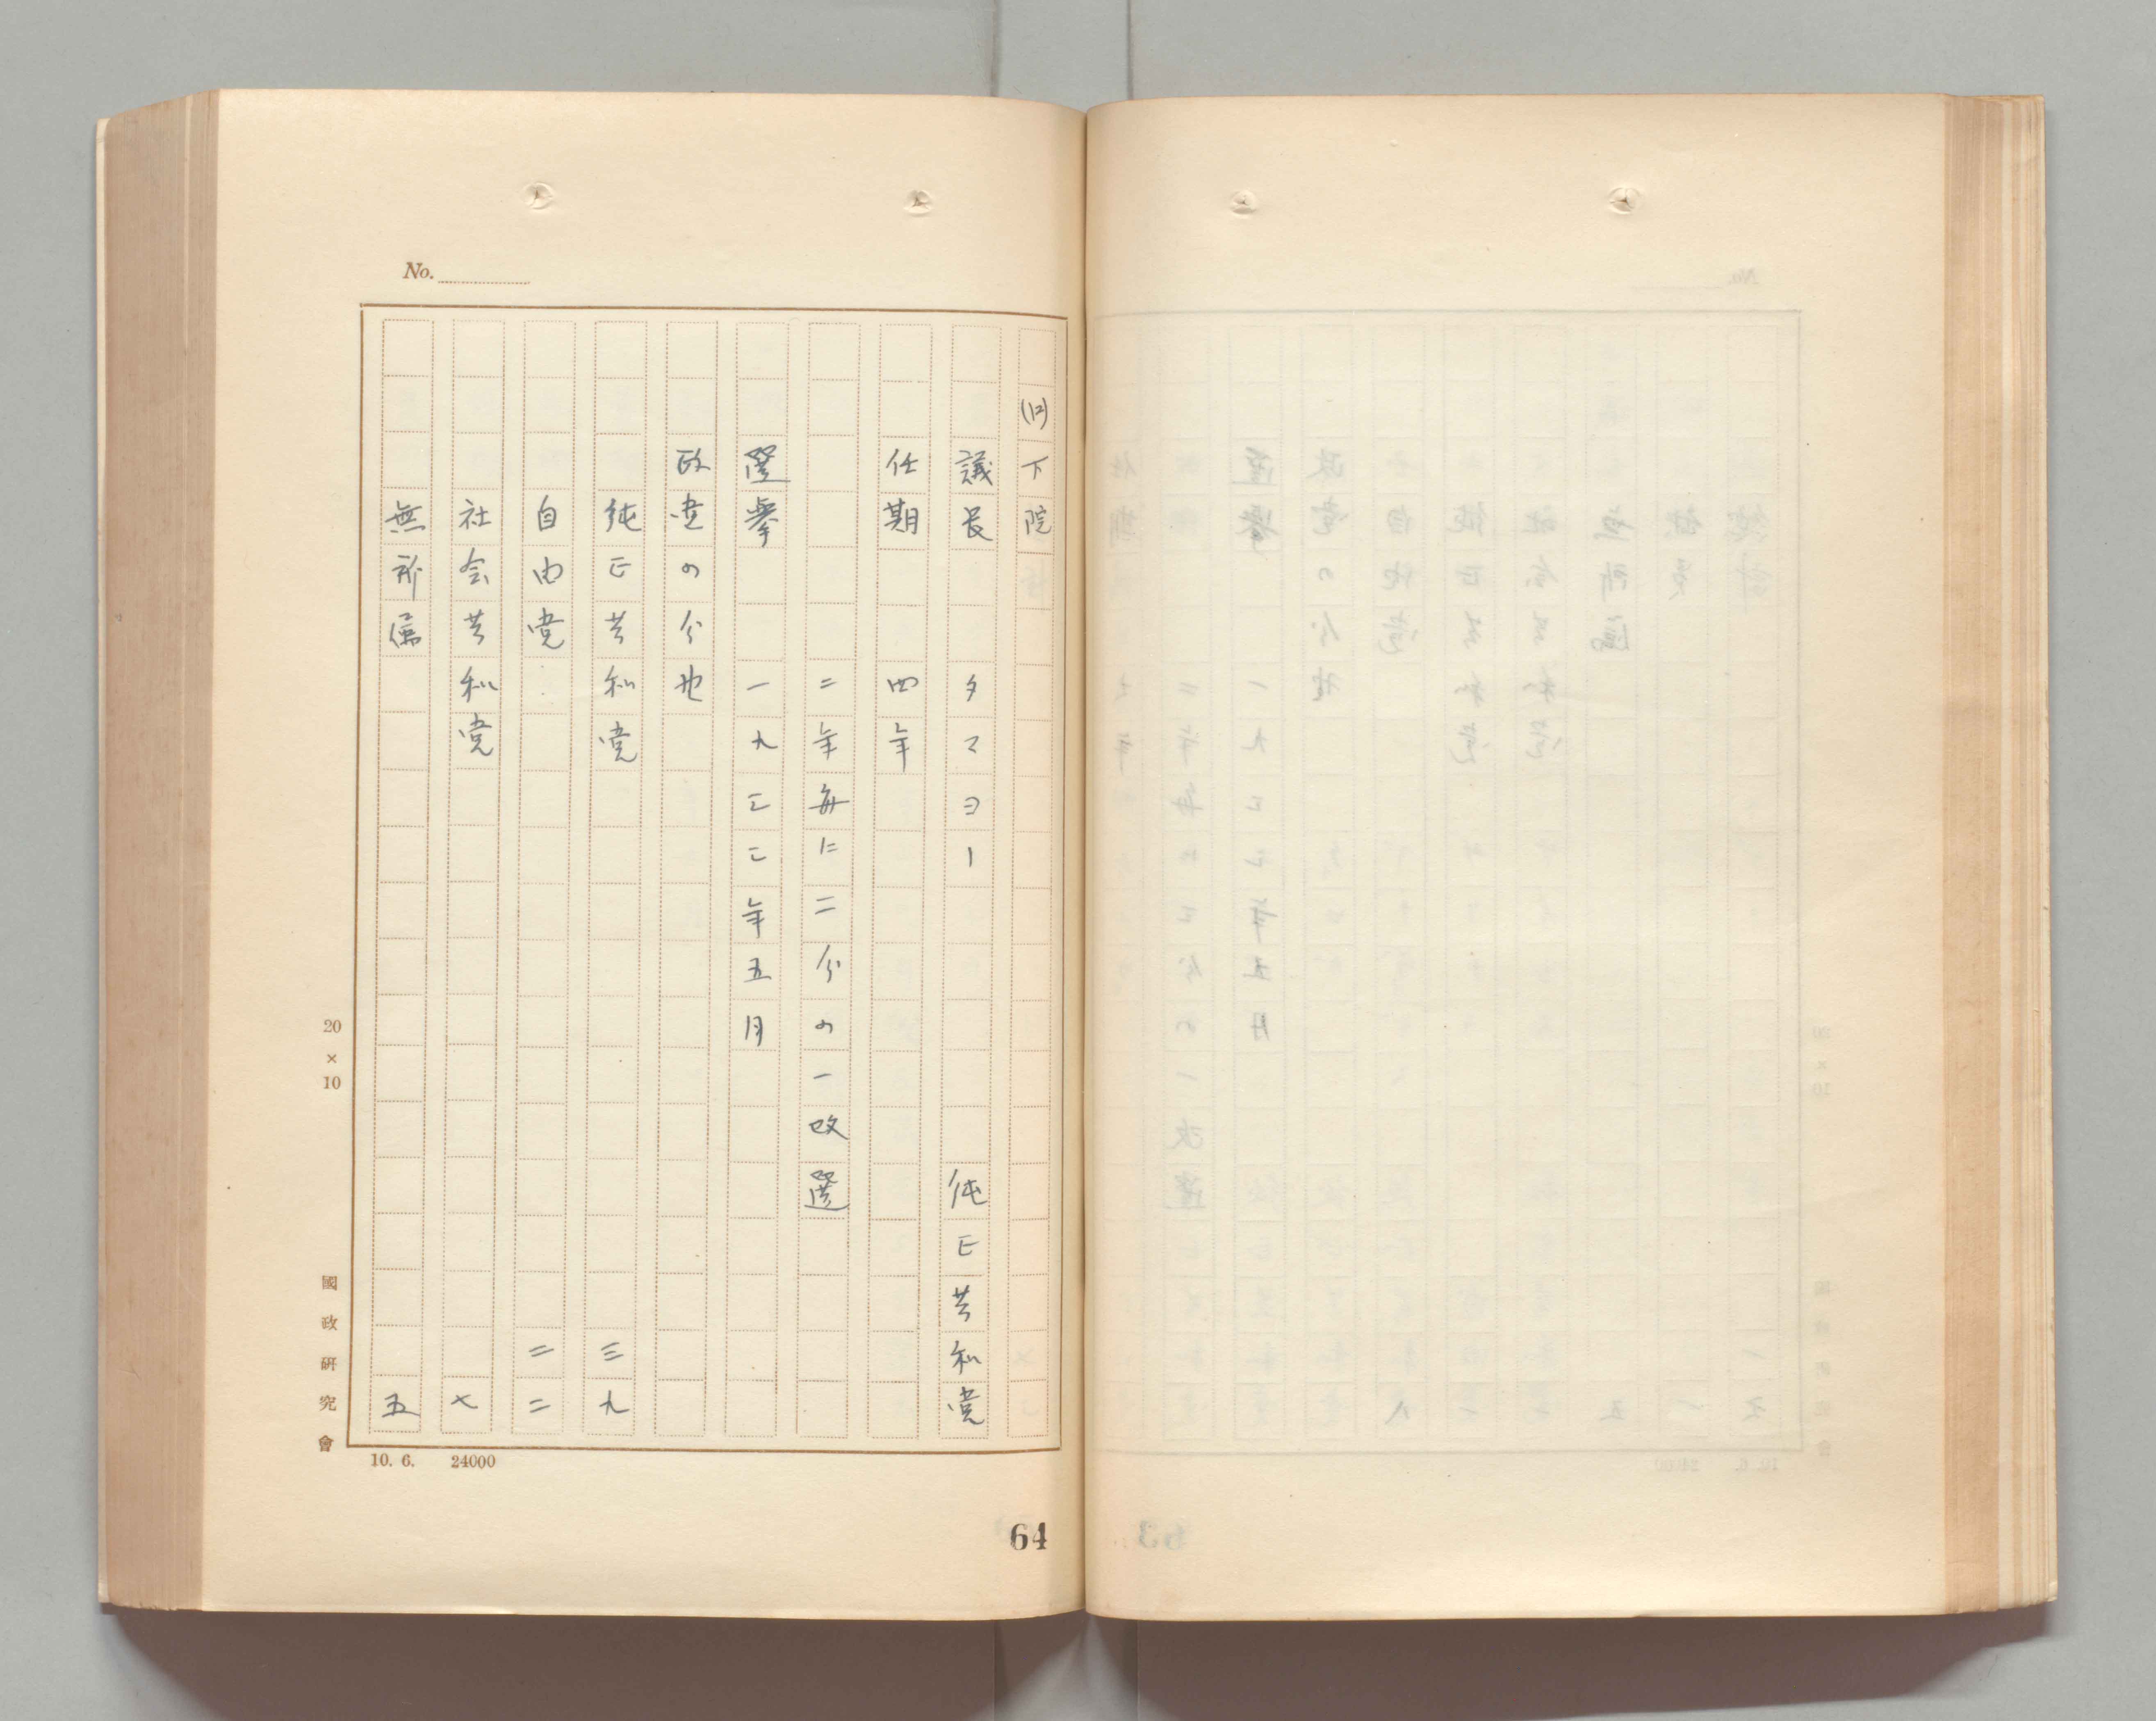 No.
(ロ)下院
議長 タマヨー 純正共和党
任期 四年
二年毎に二分の一改選
選挙 一九三三年五月
政党の分野
純正共和党 三九
自由党 二二
社会共和党 七
無所属 五
20×10
國政研究會
10. 6. 24000
64